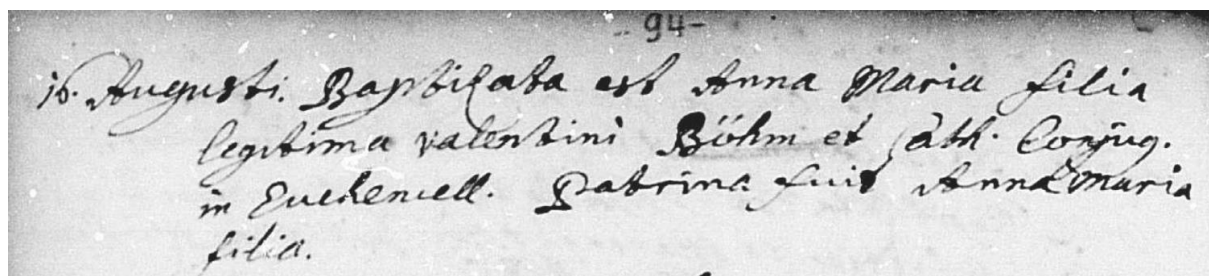 94
16. Augusti. Baptizata est Anna Maria filia
legitima Valentini Böhm et Cath. Conjug.
in Zuckenriell. Patrina fuit Anna Maria
filia.